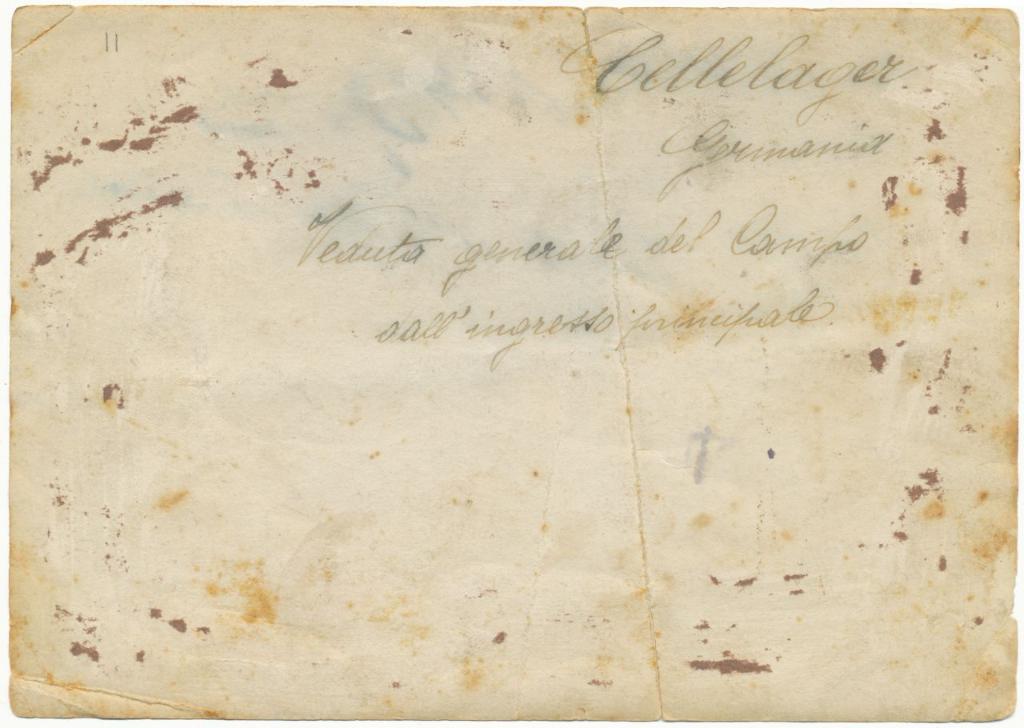 11
Cellelager
Germania
Veduta generale del Campo
dall'ingresso principale